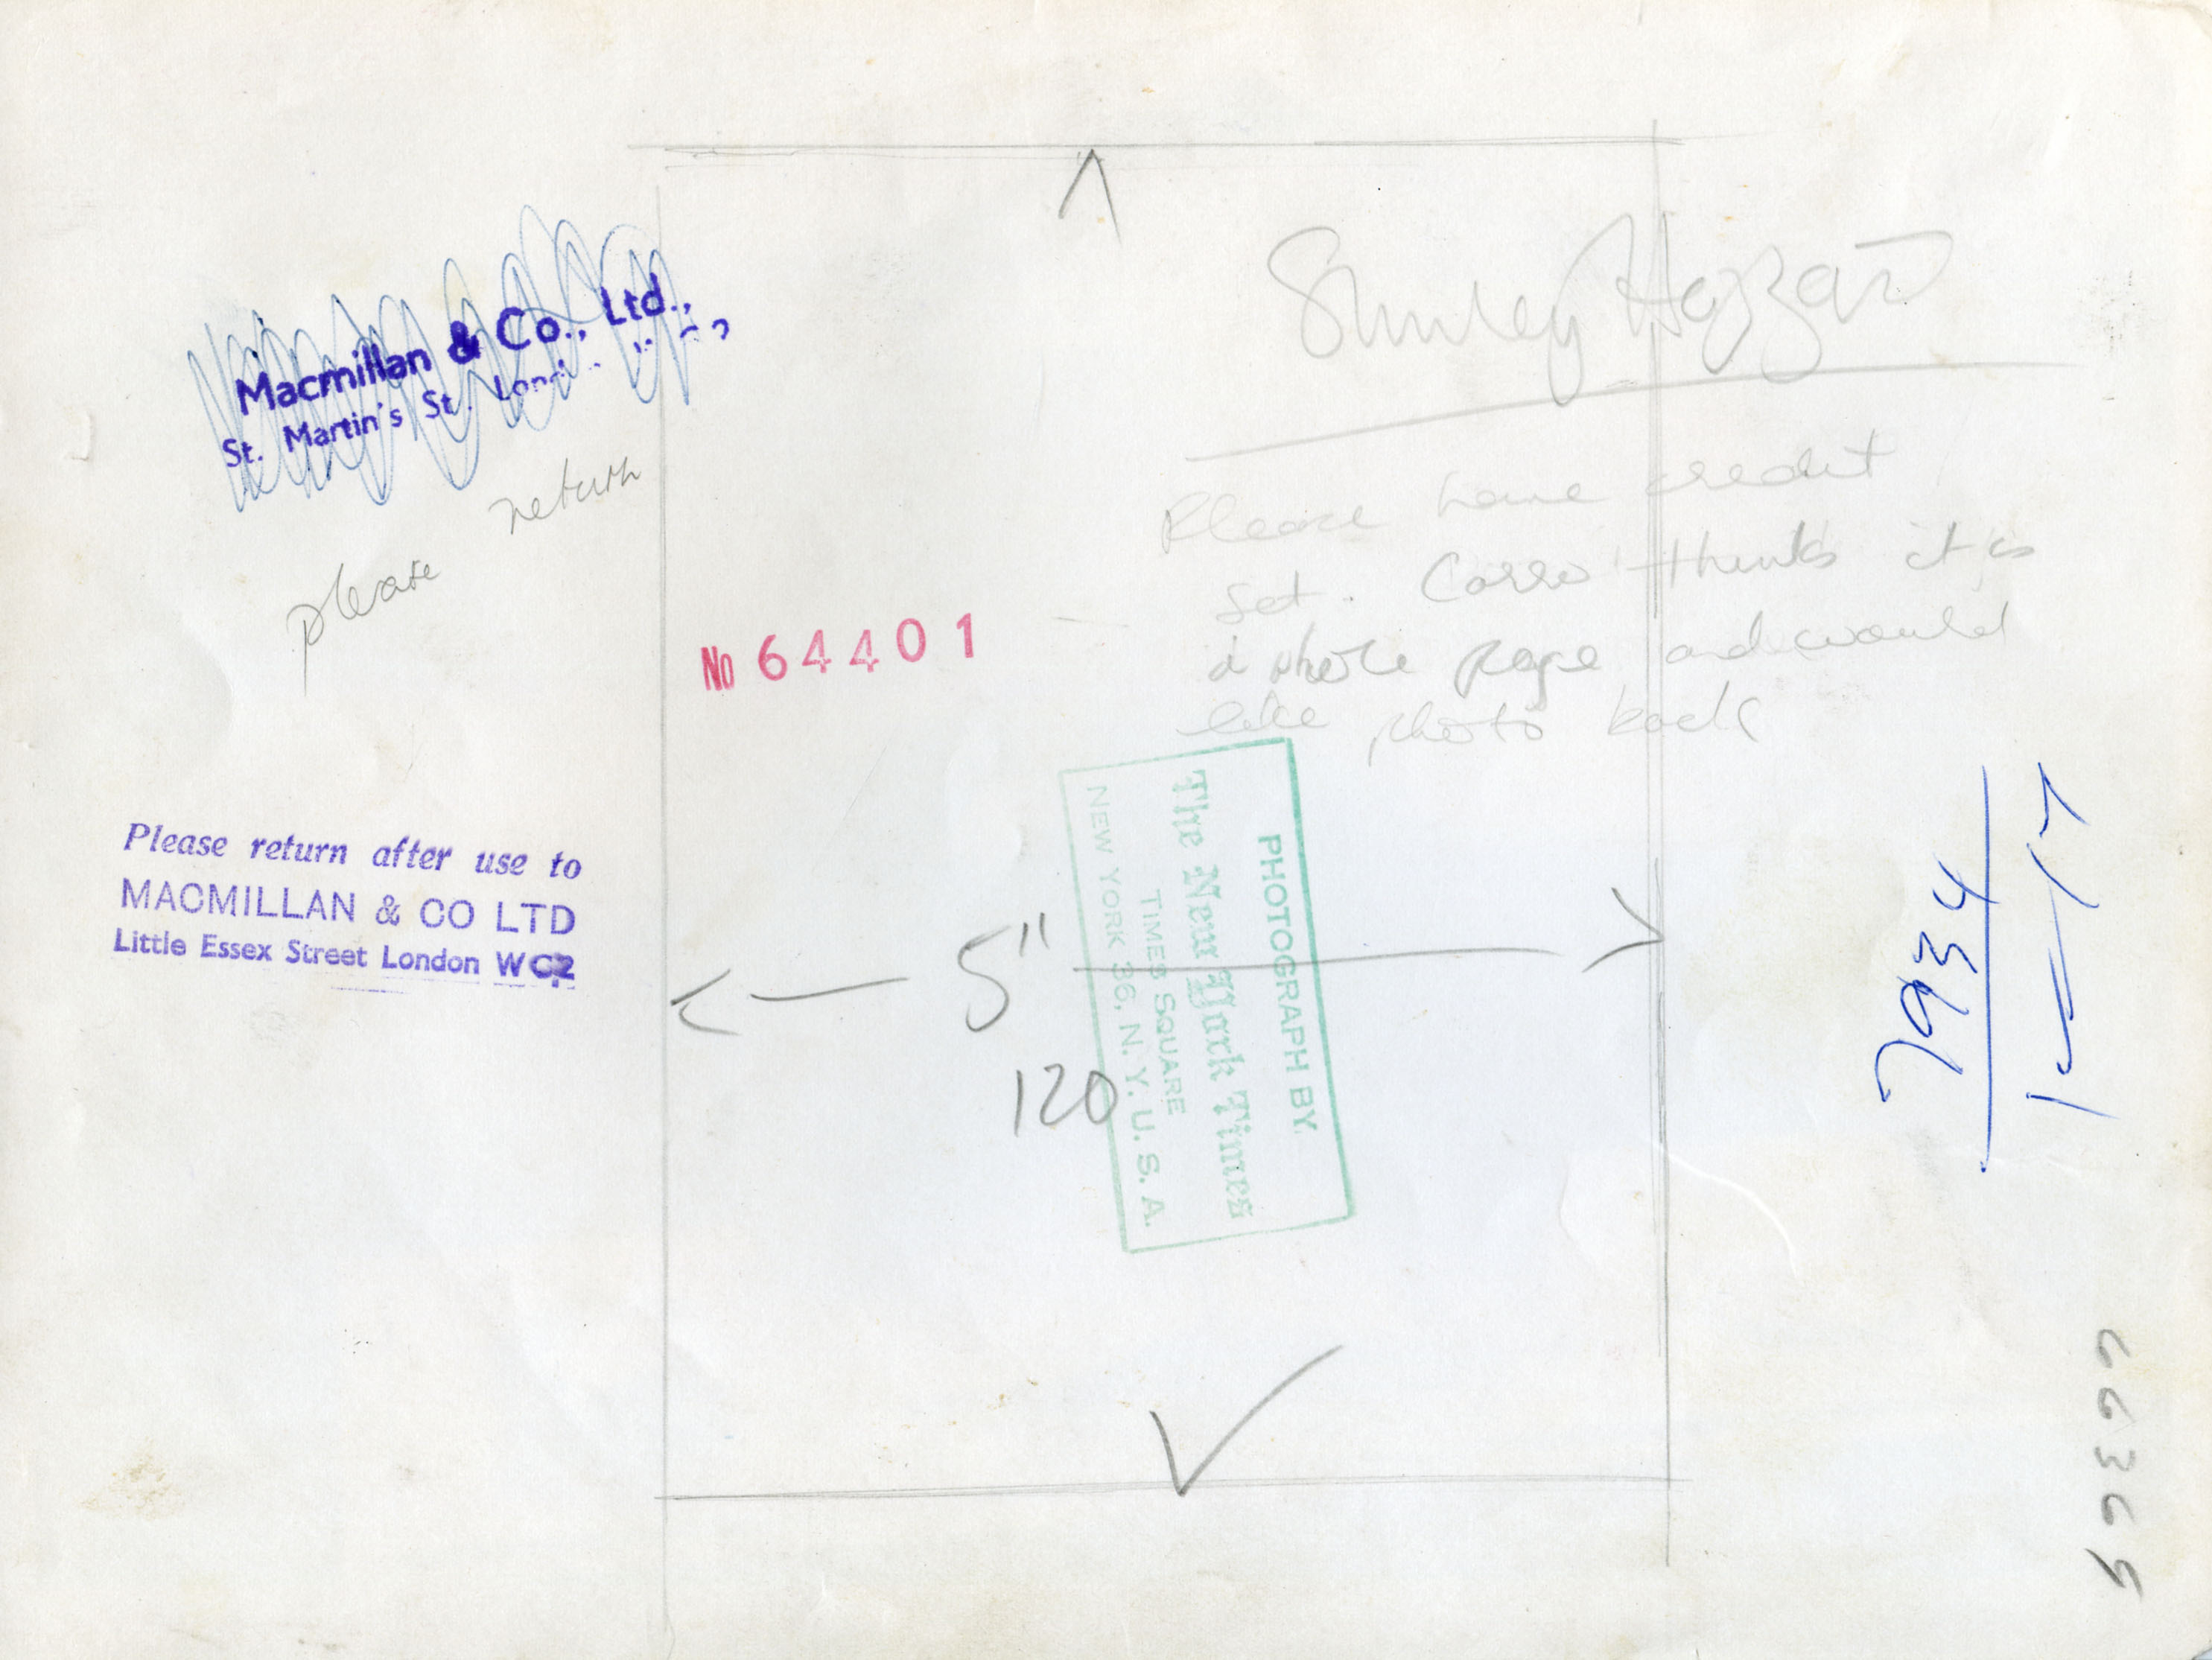 Macmillan & Co., Ltd.,
St. Martin's St.
please return
Shirley Hazzard
Please have credit
set. thinks it is
a whole page and would
like photo back
No 64401
Please return after use to
MACMILLAN & CO LTD
Little Essex Street London WC2
5"
120
PHOTOGRAPH BY
The New York Times
TIMES SQUARE
NEW YORK 36, N. Y. U. S. A.
7934